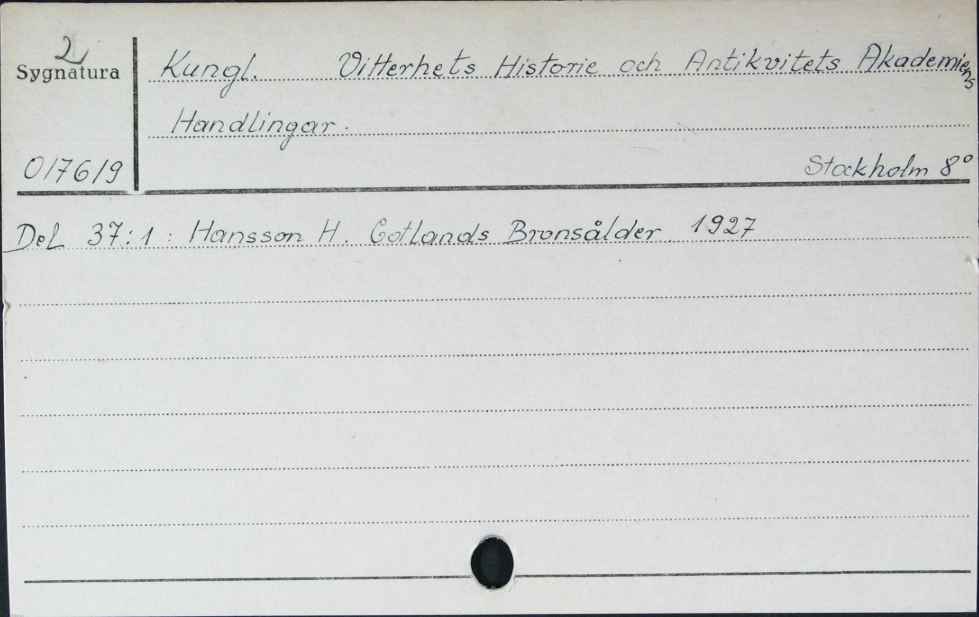 2
Sygnatura
Kungl. Vitterhets Historie och Antikvitets Akademiens
Handlingar.
017619
Stockholm 8°
Del 37:1: Hansson H. Gotlands Bronsålder. 1927